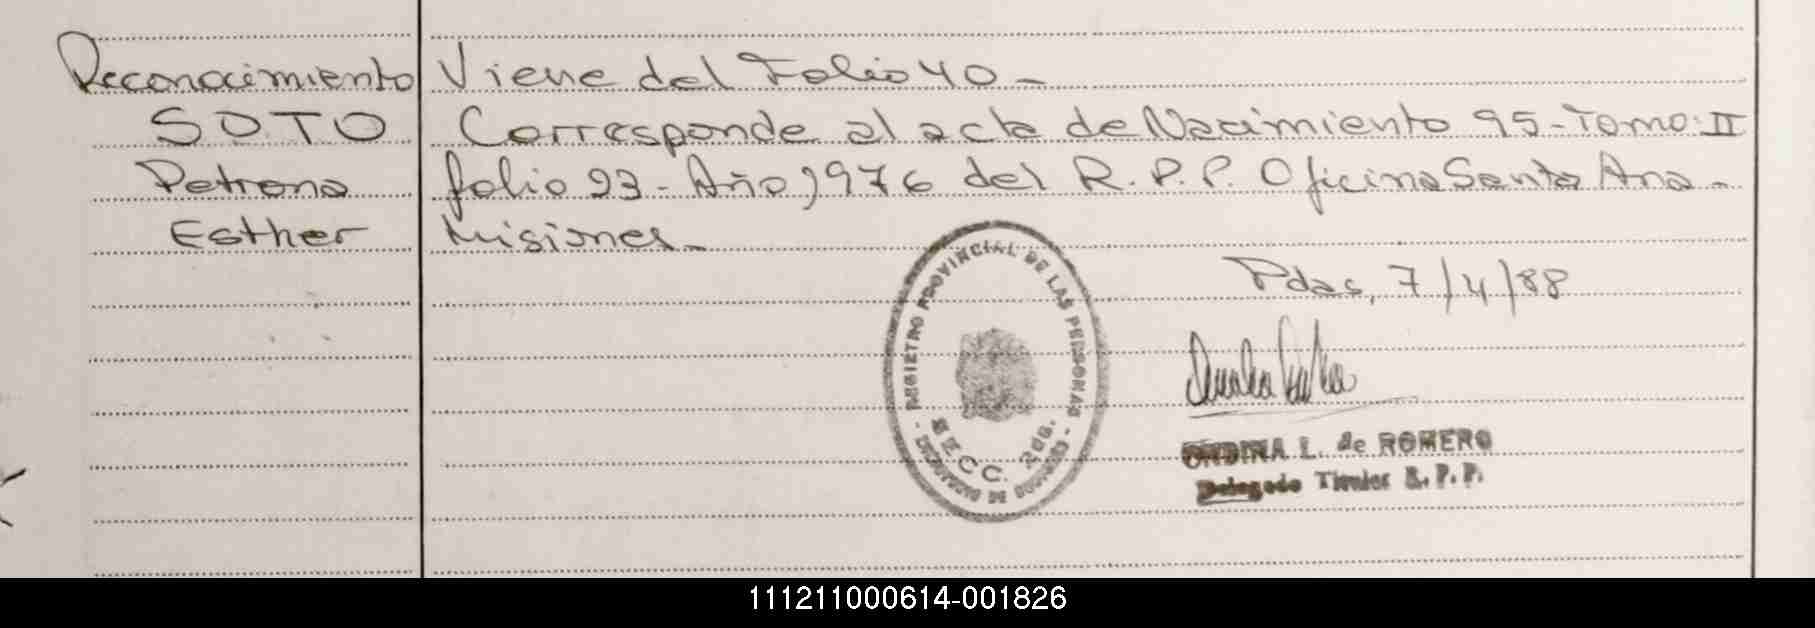 Reconocimiento
SOTO
Petrona
Esther
Viene del Folio 40 -
Corresponde al acta de Nacimiento 95 - Tomo: II
folio 23 - Año 1976 del R.P.P. Oficina Santa Ana -
Misiones -
Pdas, 7/4/88
REGISTRO PROVINCIAL DE LAS PERSONAS
SECC. 2da.
ONDINA L. de ROMERO
Delegado Titular R. P. P.
111211000614-001826